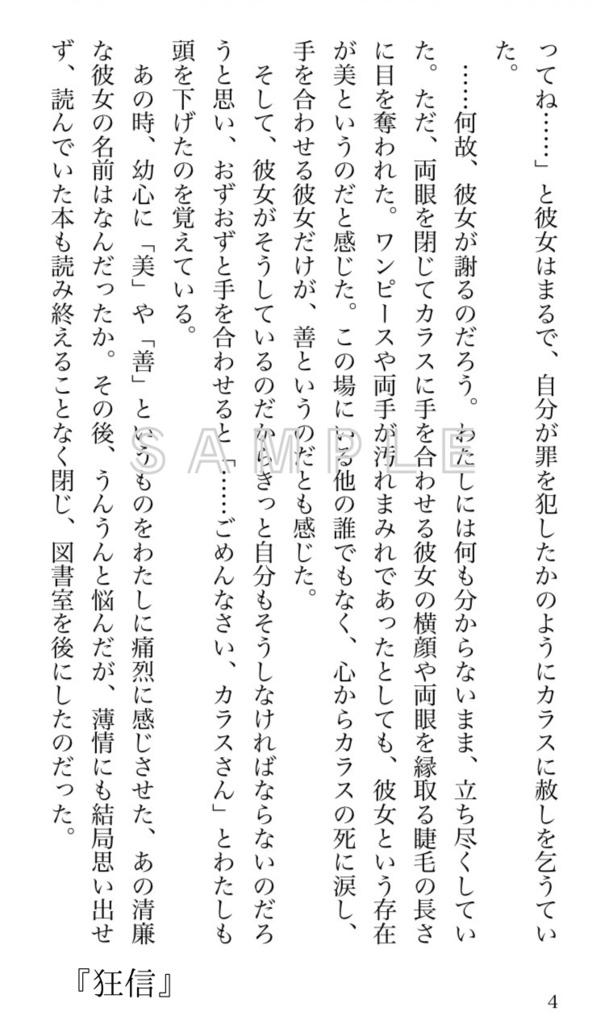 ってね……」と彼女はまるで、自分が罪を犯したかのようにカラスに赦しを乞うてい
た。
……何故、彼女が謝るのだろう。わたしには何も分からないまま、立ち尽くしてい
た。ただ、両眼を閉じてカラスに手を合わせる彼女の横顔や両眼を縁取る睫毛の長さ
に目を奪われた。ワンピースや両手が汚れまみれであったとしても、彼女という存在
が美というのだと感じた。この場にいる他の誰でもなく、心からカラスの死に涙し、
手を合わせる彼女だけが、善というのだとも感じた。
そして、彼女がそうしているのだからきっと自分もそうしなければならないのだろ
うと思い、おずおずと手を合わせると「……ごめんなさい、カラスさん」とわたしも
頭を下げたのを覚えている。
あの時、幼心に「美」や「善」というものをわたしに痛烈に感じさせた、あの清廉
な彼女の名前はなんだったか。その後、うんうんと悩んだが、薄情にも結局思い出せ
ず、読んでいた本も読み終えることなく閉じ、図書室を後にしたのだった。
SAMPLE
『狂信』
4